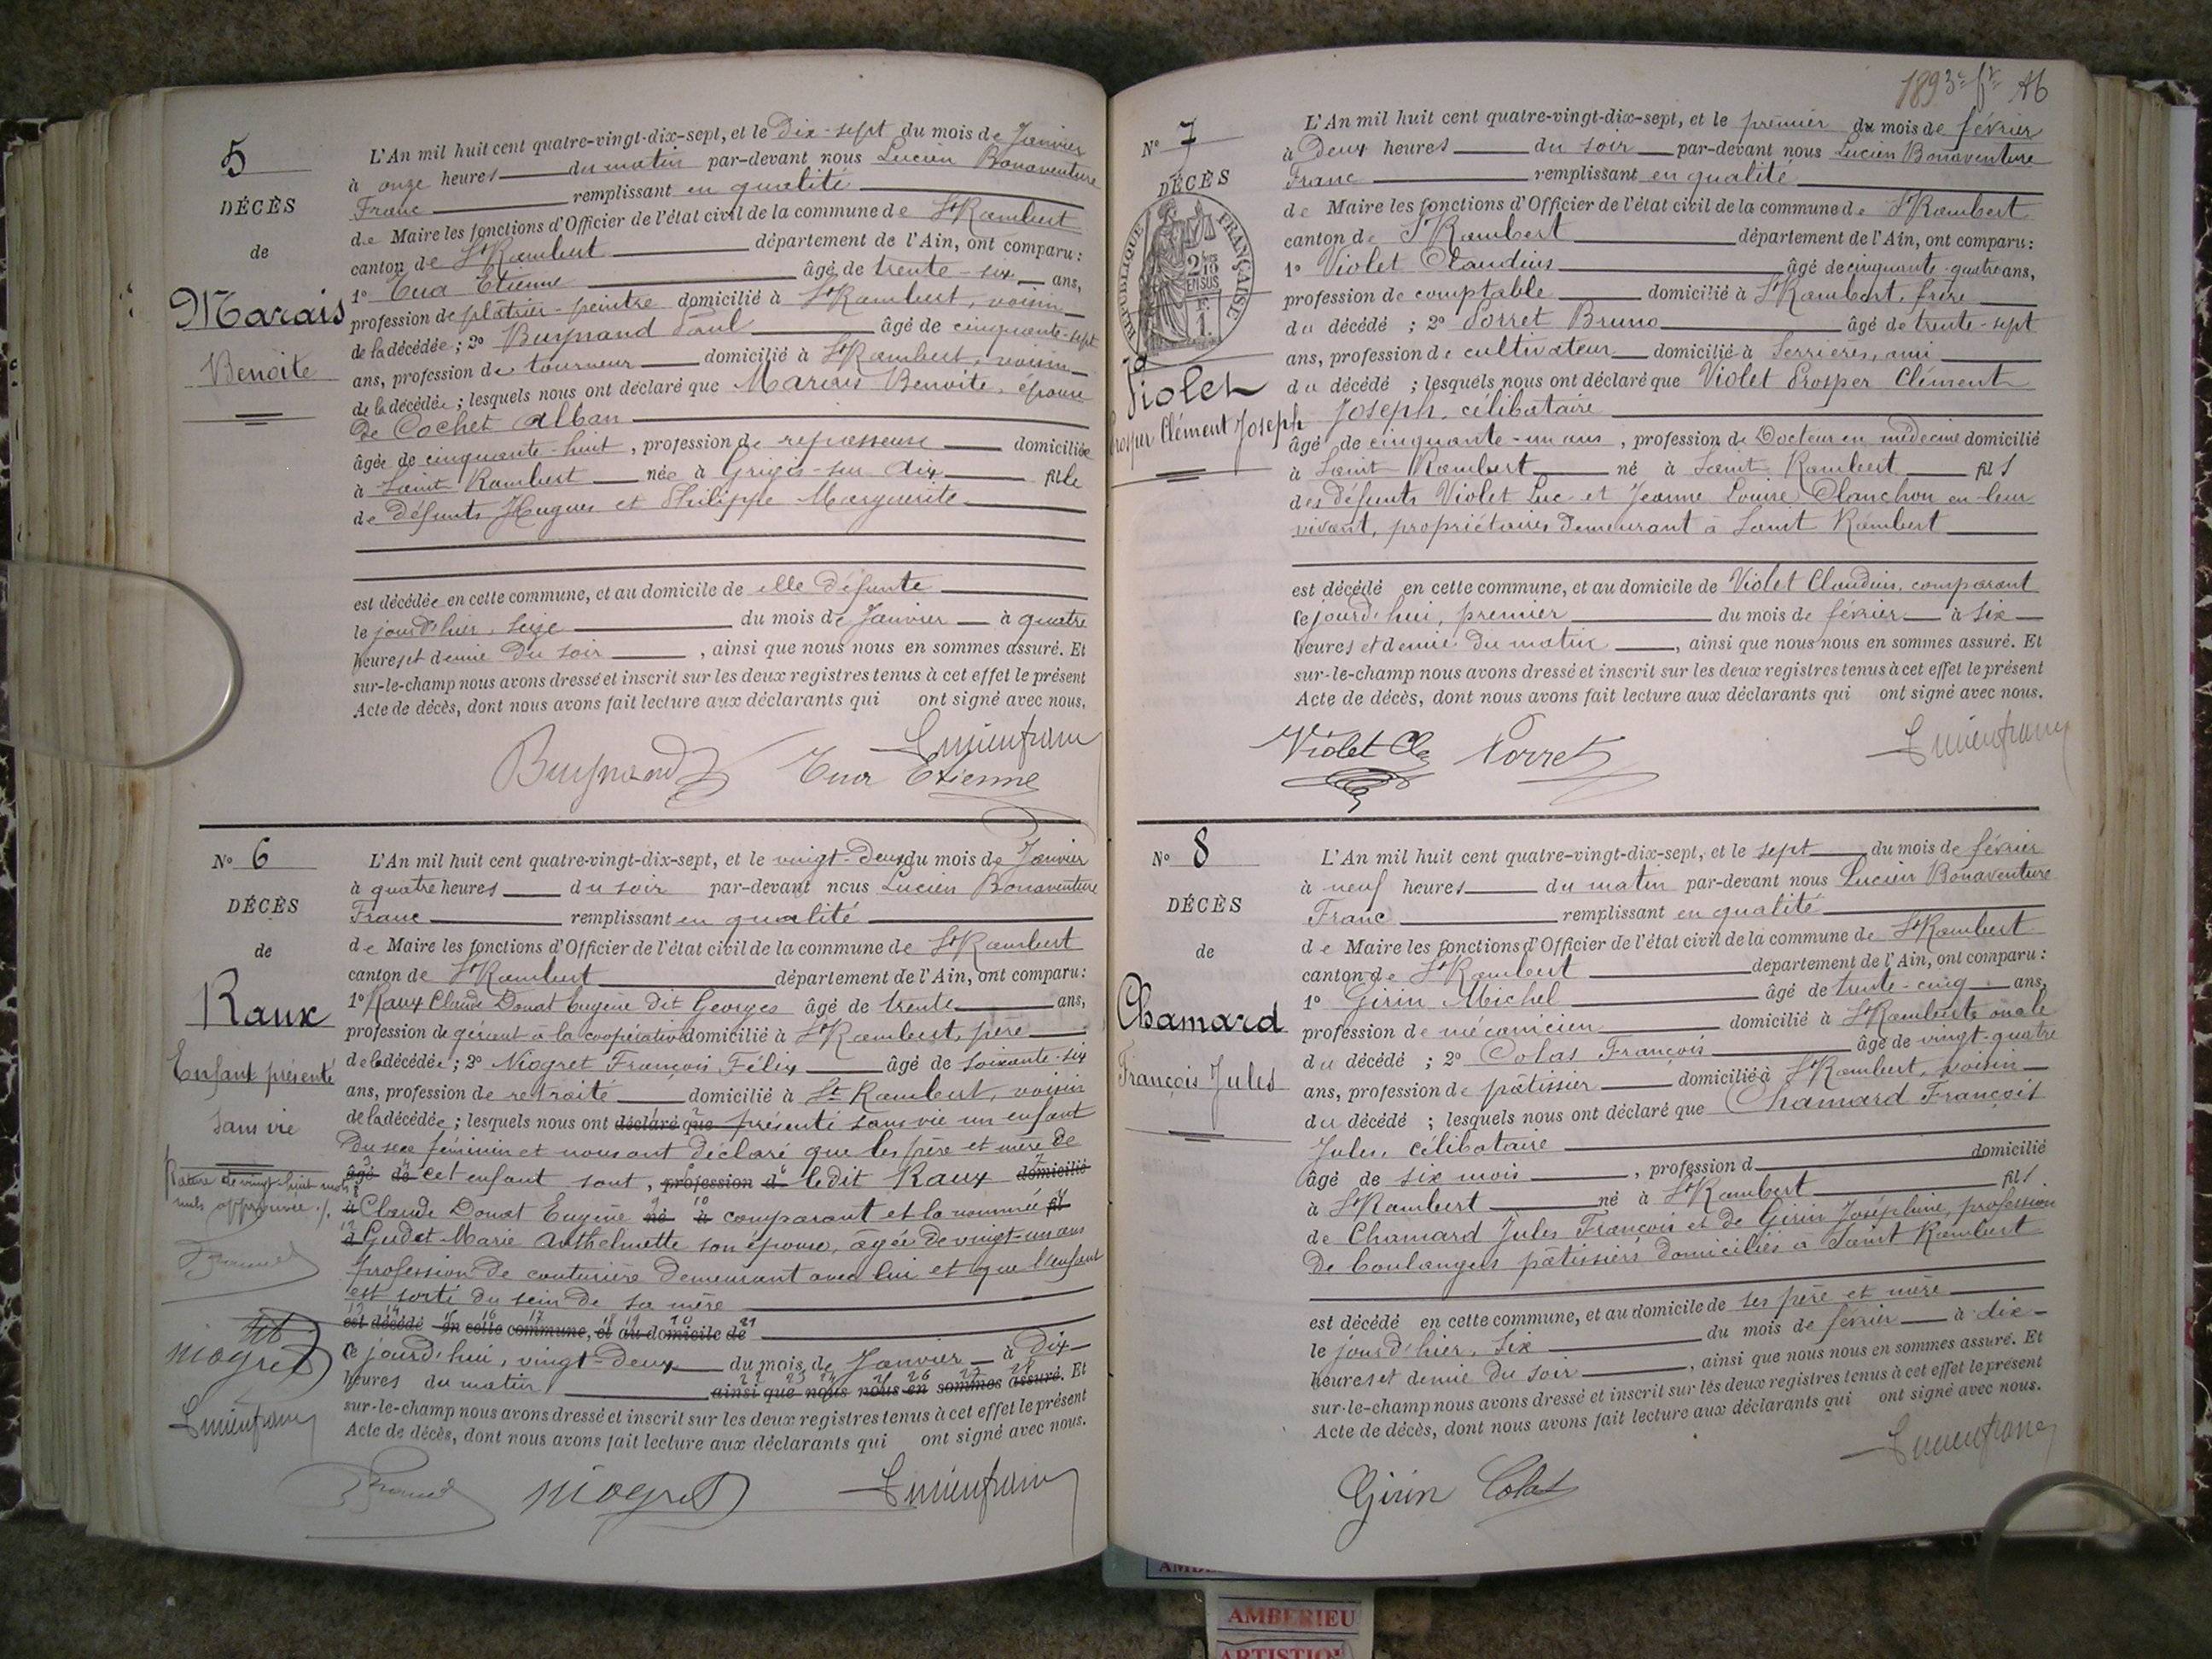 5
DÉCÈS
de
Marais
Benoite
L'An mil huit cent quatre-vingt-dix-sept, et le Dix-sept du mois de Janvier
à onze heures du matin par-devant nous Lucien Bonaventure
Franc remplissant en qualité
de Maire les fonctions d'Officier de l'état civil de la commune de St Rambert
canton de St Rambert département de l'Ain, ont comparu:
1° Etienne âgé de trente-six ans,
profession de plâtrier-peintre domicilié à St Rambert, voisin
de la décédée; 2° Buynand Paul âgé de cinquante-sept
ans, profession de tourneur domicilié à St Rambert, voisin
de la décédée; lesquels nous ont déclaré que Marais Benoite, épouse
de Cochet Alban
âgée de cinquante-huit, profession de repasseuse domiciliée
à Saint Rambert née à sur Aix fille
de défunts Hugues et Philippe Marguerite
est décédée en cette commune, et au domicile de elle défunte
le jourd'hier, seize du mois de Janvier à quatre
heures et demie du soir, ainsi que nous nous en sommes assuré. Et
sur-le-champ nous avons dressé et inscrit sur les deux registres tenus à cet effet le présent
Acte de décès, dont nous avons fait lecture aux déclarants qui ont signé avec nous.
Lucien franc
Buynand Etienne
N° 6
DÉCÈS
de
Raux
Enfant présenté
sans vie
Rature de vingt-huit mots
nuls approuvée ./.
Niogret
Lucien franc
L'An mil huit cent quatre-vingt-dix-sept, et le vingt-deux du mois de Janvier
à quatre heures du soir par-devant nous Lucien Bonaventure
Franc remplissant en qualité
de Maire les fonctions d'Officier de l'état civil de la commune de St Rambert
canton de St Rambert département de l'Ain, ont comparu:
1° Raux Claude Donat Eugène dit Georges âgé de trente ans,
profession de gérant à la coopérative domicilié à St Rambert, père
de la décédée; 2° Niogret François Félix âgé de soixante-six
ans, profession de retraité domicilié à St Rambert, voisin
de la décédée; lesquels nous ont déclaré que présenté sans vie un enfant
du sexe féminin et nous ont déclaré que les père et mère de
âgé de cet enfant sont, profession d ledit Raux domicilié
à Claude Donat Eugène né à comparant et la nommée fil
d Gudet Marie Anthelmette son épouse, âgée de vingt-un ans
profession de couturière demeurant avec lui et que l'enfant
est sorti du sein de sa mère
est décédé en cette commune, et au domicile de
ce jourd'hui, vingt-deux du mois de Janvier à dix
heures du matin ainsi que nous nous en sommes assuré. Et
sur-le-champ nous avons dressé et inscrit sur les deux registres tenus à cet effet le présent
Acte de décès, dont nous avons fait lecture aux déclarants qui ont signé avec nous.
Niogret Lucien franc
1893
N° 7
DÉCÈS
RÉPUBLIQUE FRANÇAISE
2/10 EN SUS
1 F.
Violet
Prosper Clément Joseph
L'An mil huit cent quatre-vingt-dix-sept, et le premier du mois de février
à Deux heures du soir par-devant nous Lucien Bonaventure
Franc remplissant en qualité
de Maire les fonctions d'Officier de l'état civil de la commune de St Rambert
canton de St Rambert département de l'Ain, ont comparu:
1° Violet Claudius âgé de cinquante-quatre ans,
profession de comptable domicilié à St Rambert, frère
du décédé; 2° Porret Bruno âgé de trente-sept
ans, profession de cultivateur domicilié à Serrières, ami
du décédé; lesquels nous ont déclaré que Violet Prosper Clément
Joseph, célibataire
âgé de cinquante-un ans, profession de Docteur en médecine domicilié
à Saint Rambert né à Saint Rambert fils
des défunts Violet Luc et Jeanne Louise Planchon en leur
vivant, propriétaires demeurant à Saint Rambert
est décédé en cette commune, et au domicile de Violet Claudius, comparant
ce jourd'hui, premier du mois de février à six
heures et demie du matin, ainsi que nous nous en sommes assuré. Et
sur-le-champ nous avons dressé et inscrit sur les deux registres tenus à cet effet le présent
Acte de décès, dont nous avons fait lecture aux déclarants qui ont signé avec nous.
Violet Cl Porret Lucien franc
N° 8
DÉCÈS
de
Chamard
François Jules
L'An mil huit cent quatre-vingt-dix-sept, et le sept du mois de février
à neuf heures du matin par-devant nous Lucien Bonaventure
Franc remplissant en qualité
de Maire les fonctions d'Officier de l'état civil de la commune de St Rambert
canton de St Rambert département de l'Ain, ont comparu:
1° Girin Michel âgé de trente-cinq ans,
profession de mécanicien domicilié à St Rambert oncle
du décédé; 2° Colas François âgé de vingt-quatre
ans, profession de pâtissier domicilié à St Rambert, voisin
du décédé; lesquels nous ont déclaré que Chamard François
Jules, célibataire
âgé de six mois, profession d domicilié
à St Rambert né à St Rambert fils
de Chamard Jules François et de Girin Joséphine, profession
de boulangers pâtissiers domiciliés à Saint Rambert
est décédé en cette commune, et au domicile de ses père et mère
le jourd'hier, six du mois de février à dix
heures et demie du soir, ainsi que nous nous en sommes assuré. Et
sur-le-champ nous avons dressé et inscrit sur les deux registres tenus à cet effet le présent
Acte de décès, dont nous avons fait lecture aux déclarants qui ont signé avec nous.
Lucien franc
Girin Colas
AMBERIEU